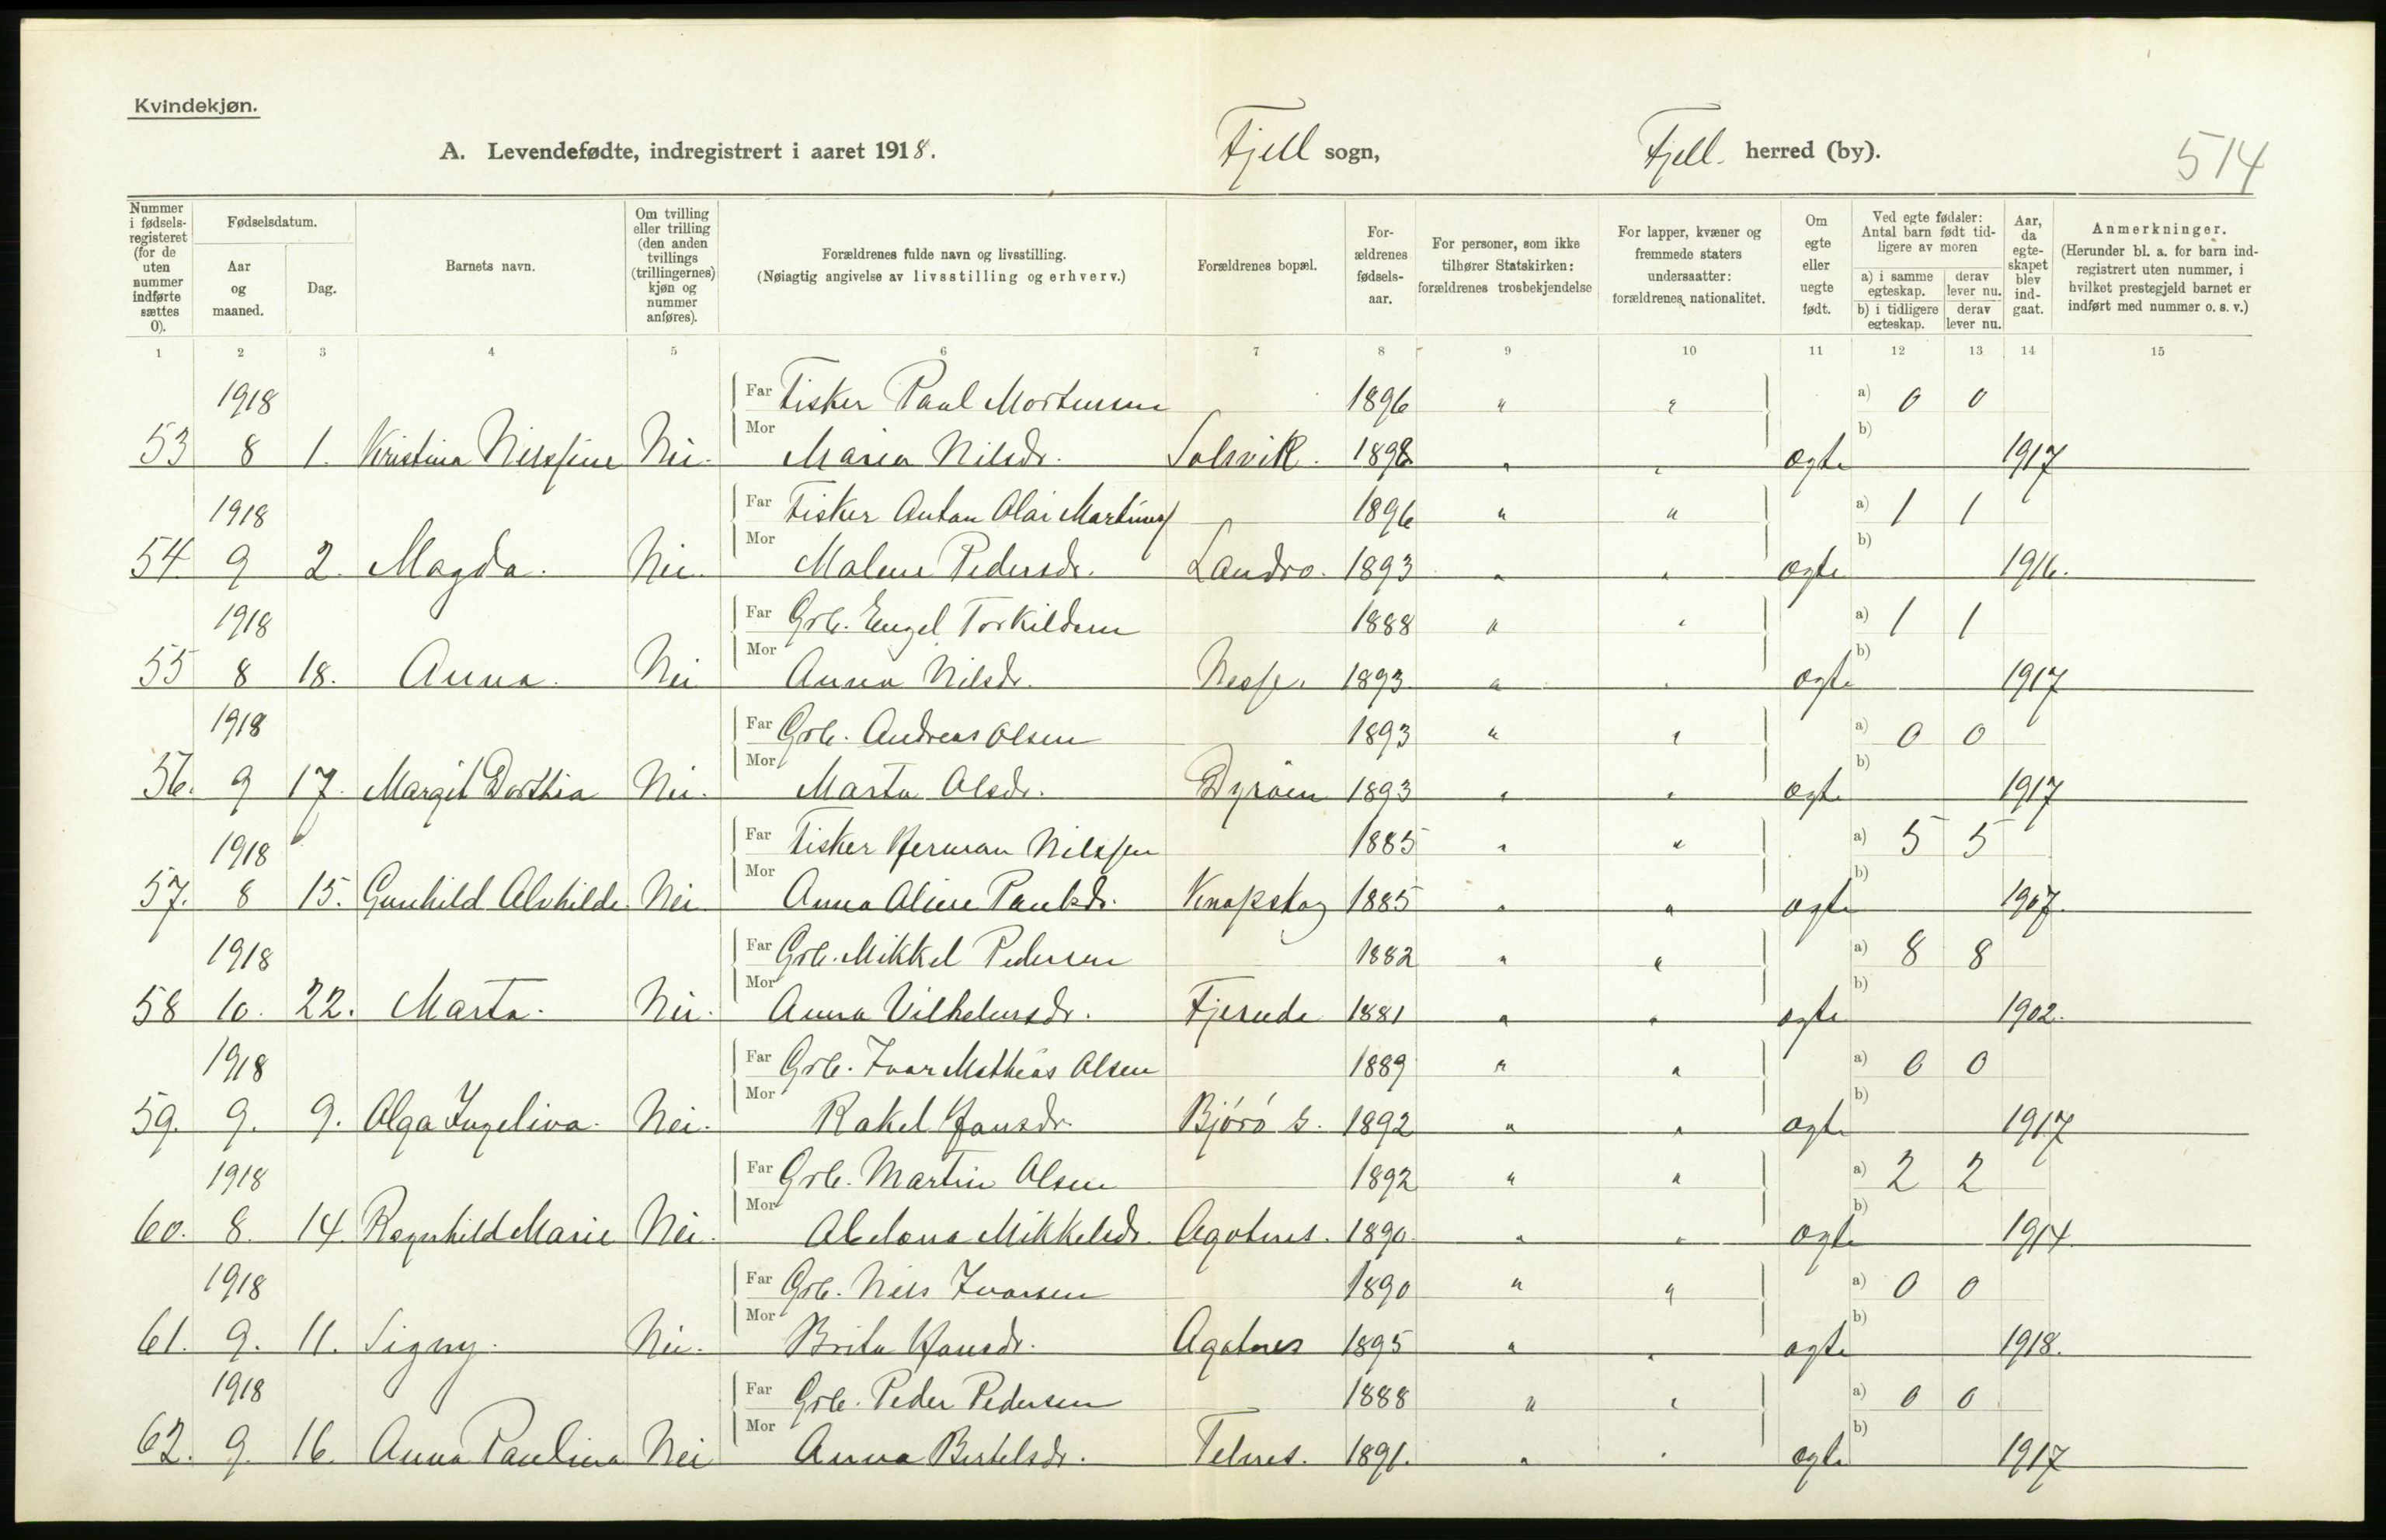 Kvindekjøn.
A. Levendefødte, indregistrert i aaret 1918. Fjell sogn, Fjell herred (by). 514
Nummer i fødselsregisteret (for de uten nummer indførte sættes 0).
Fødselsdatum.
Aar og maaned.
Dag.
Barnets navn.
Om tvilling eller trilling (den anden tvillings (trillingernes) kjøn og nummer anføres).
Forældrenes fulde navn og livsstilling.
(Nøiagtig angivelse av livsstilling og erhverv.)
Forældrenes bopæl.
Forældrenes fødselsaar.
For personer, som ikke tilhører Statskirken: forældrenes trosbekjendelse
For lapper, kvæner og fremmede staters undersaatter: forældrenes nationalitet.
Om egte eller uegte født.
Ved egte fødsler: Antal barn født tidligere av moren
a) i samme egteskap. derav lever nu.
b) i tidligere egteskap. derav lever nu.
Aar, da egteskapet blev indgaat.
Anmerkninger.
(Herunder bl. a. for barn indregistrert uten nummer, i hvilket prestegjeld barnet er indført med nummer o. s. v.)
1 2 3 4 5 6 7 8 9 10 11 12 13 14 15
1918 Far Fisker Paul Mortensen 1896 " " a) 0 0
53 8 1. Kristina Nilssine Nei. Mor Maria Nilsdr. Solsvik. 1898 " " ægte b) 1917
1918 Far Fisker Anton Olai Martins 1896 " " a) 1 1
54. 9 2. Magda. Nei. Mor Malene Pedersdr. Landro. 1893 " " ægte b) 1916.
1918 Far Grb. Engel Torkildsen 1888 " " a) 1 1
55 8 18. Anna. Nei Mor Anna Nilsdr. Nesse. 1893 " " ægte b) 1917
1918 Far Grb. Andreas Olsen 1893 " " a) 0 0
56. 9 17. Margit Dorthia Nei. Mor Marta Olsdr. Dyröen 1893 " " ægte b) 1917
1918 Far Fisker Herman Nilssen 1885 " " a) 5 5
57. 8 15. Gunhild Alvhilde. Nei. Mor Anna Oline Paulsdr. Knapskog 1885 " " ægte b) 1907.
1918 Far Grb. Mikkel Pedersen 1882 " " a) 8 8
58 10. 22. Marta. Nei. Mor Anna Vilhelmsdr. Fjereide 1881 " " ægte b) 1902.
1918 Far Grb. Ivar Mathias Olsen 1889 " " a) 0 0
59. 9. 9. Olga Ingeliva. Nei. Mor Rakel Hansdr. Bjórö s. 1892 " " ægte b) 1917
1918 Far Grb. Martin Olsen 1892 " " a) 2 2
60. 8. 14. Ragnhild Marie Nei. Mor Abelona Mikkelsdr. Agotnes. 1890. " " ægte b) 1914.
1918 Far Grb. Nils Ivarsen 1890 " " a) 0 0
61. 9. 11. Signy. Nei. Mor Brita Hansdr. Agotnes 1895 " " ægte b) 1918.
1918 Far Grb. Peder Pedersen 1888 " " a) 0 0
62. 9. 16. Anna Paulina Nei Mor Anna Bertelsdr. Telnes. 1891. " " ægte b) 1917